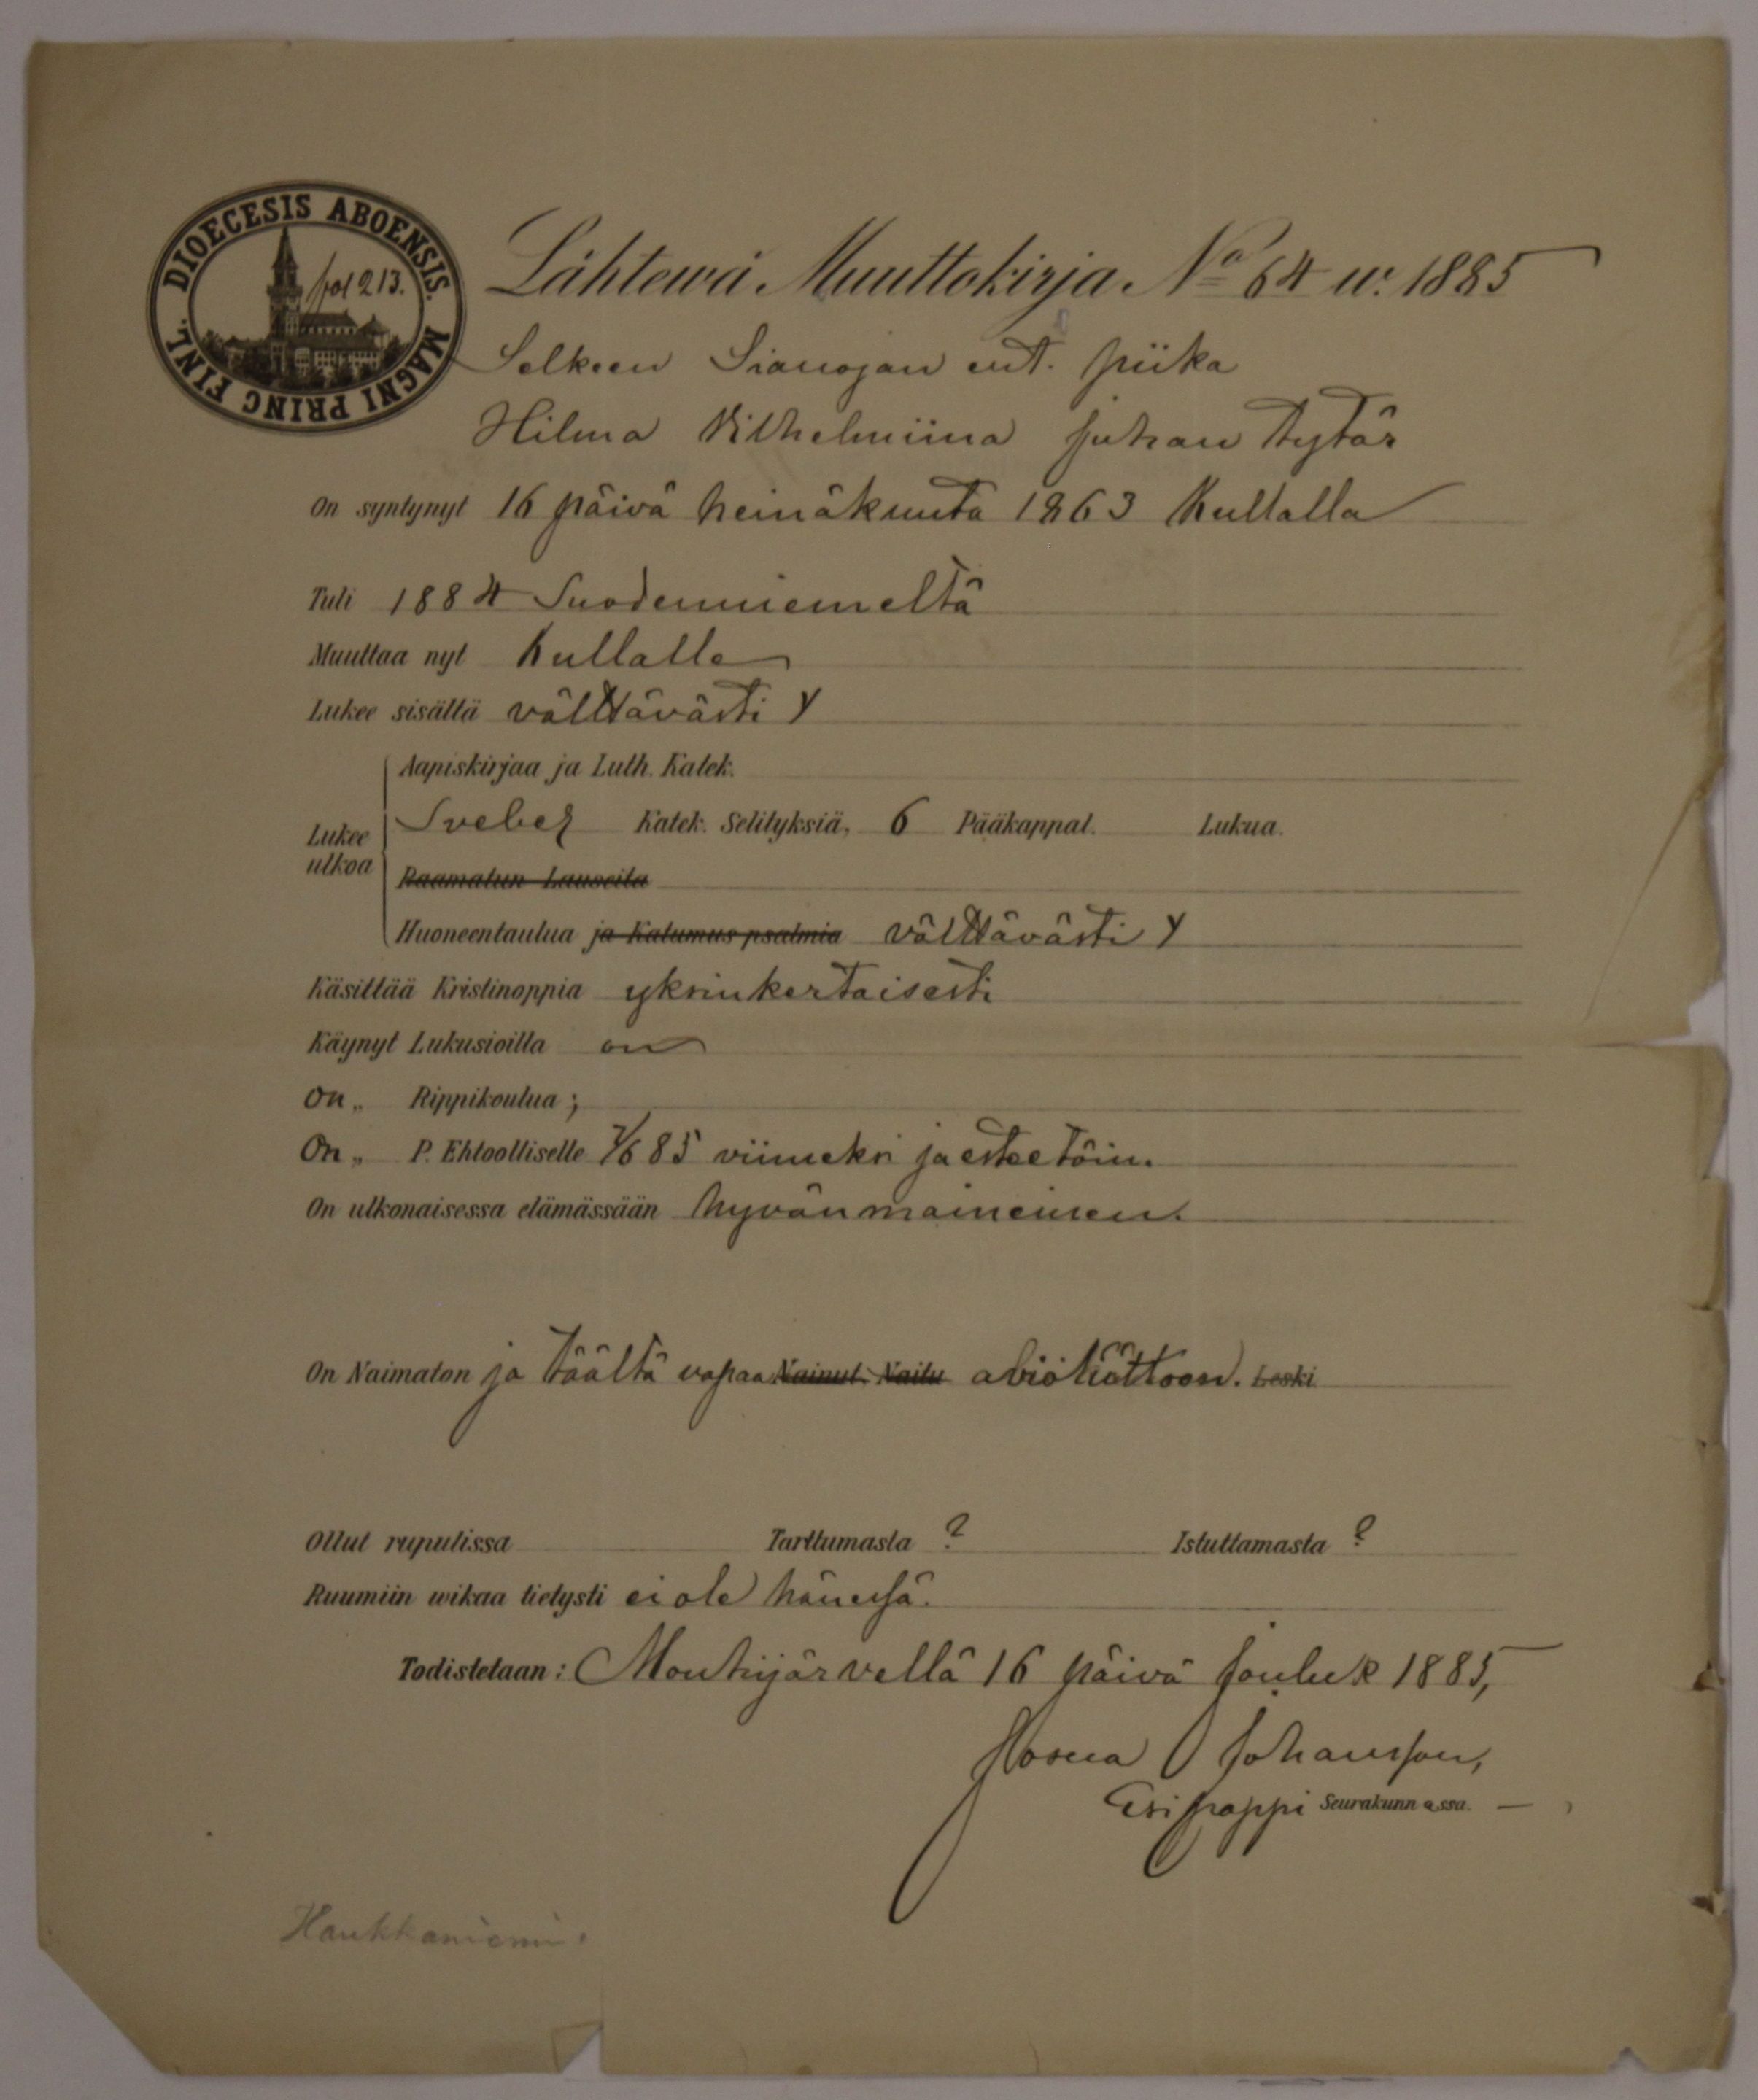 DIOECESIS ABOENSIS. MAGNI PRINC FINL.
fol 213.
Lähtewä Muuttokirja No 64 w. 1885
Selkeen Sianojan ent. piika
Hilma Vilhelmiina Juhan tytär
On syntynyt 16 päivä heinäkuuta 1863 Kullalla
Tuli 1884 Suodenniemeltä
Muuttaa nyt Kullalle
Lukee sisältä välttävästi Y
Aapiskirjaa ja Luth. Katek.
Lukee ulkoa
Svebel Katek. Selityksiä, 6 Pääkappal. Lukua.
Raamatun Lauseita
Huoneentaulua ja Katumus psalmia välttävästi Y
Käsittää Kristinoppia yksinkertaisesti
Käynyt Lukusioilla on
On „ Rippikoulua;
On „ P. Ehtoolliselle 7/6 85 viimeksi ja esteetöin.
On ulkonaisessa elämässään hyvänmaineinen.
On Naimaton ja täältä vapaa Nainut. Naitu aviosäättoon. Leski
Ollut rupulissa Tarttumasta ? Istuttamasta ?
Ruumiin wikaa tietysti ei ole hänessä.
Todistetaan: Mouhijärvellä 16 päivä Jouluk 1885,
Josua Johansson,
Esipappi Seurakunnassa. —
Haukkaniemi.